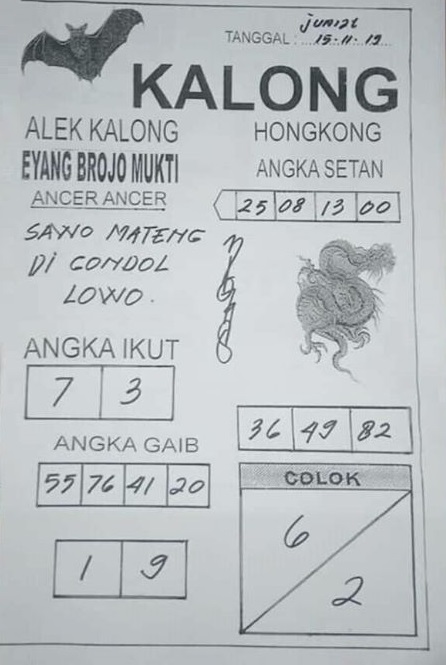 jumat
TANGGAL : 15-11-19
KALONG
ALEK KALONG
HONGKONG
EYANG BROJO MUKTI
ANGKA SETAN
ANCER ANCER
25 08 13 00
SAWO MATENG
DI GONDOL
LOWO.
ANGKA IKUT
7 3
36 49 82
ANGKA GAIB
55 76 41 20
COLOK
6
2
1 9